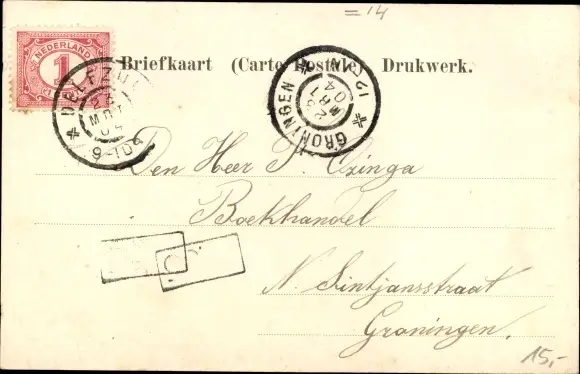 = 14
NEDERLAND
1
Briefkaart (Carte Postale) Drukwerk.
DELFZIJL
MRT
04
9-10V
GRONINGEN
28
MRT
04
GRONINGEN
Den Heer P. Ozinga
Boekhandel
N. Sintjansstraat
Groningen.
15,-